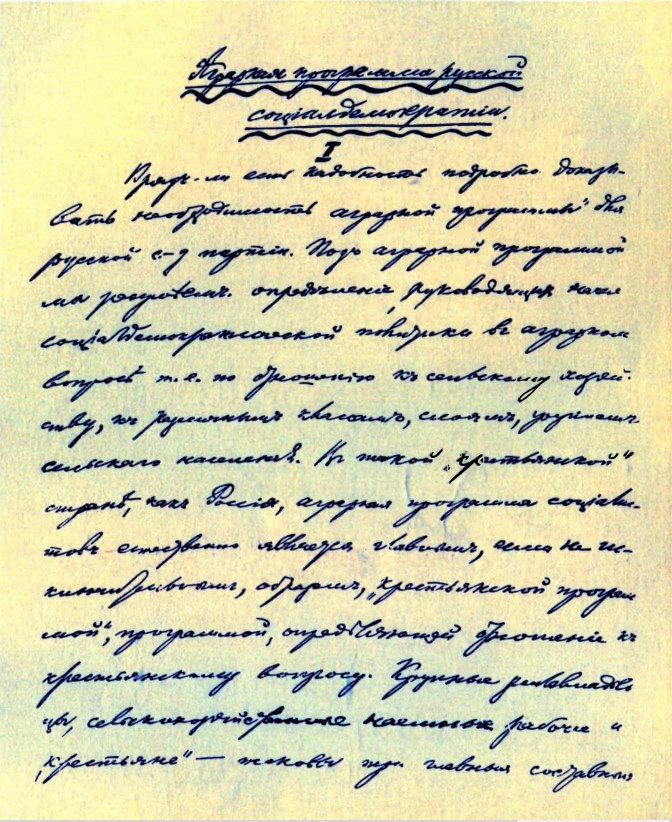 Аграрная программа русской
соціалдемократіи.
I
Врядъ-ли есть надобность подробно доказы-
вать необходимость аграрной программы для
русской с-д партіи. Подъ аграрной программой
мы разумѣемъ опредѣленіе руководящихъ началъ
соціалдемократической политики въ аграрномъ
вопросѣ т.е. по отношенію къ сельскому хозяй-
ству, къ различнымъ классамъ, слоямъ, группамъ
сельскаго населенія. Въ такой „крестьянской"
странѣ, какъ Россія, аграрная программа соціалис-
товъ естественно является главнымъ, если не ис-
ключительнымъ, образомъ, „крестьянской програм-
мой", программой, опредѣляющей отношеніе къ
крестьянскому вопросу. Крупные землевладѣль-
цы, сельскохозяйственные наемные рабочіе и
„крестьяне" — таковы три главныя составныя